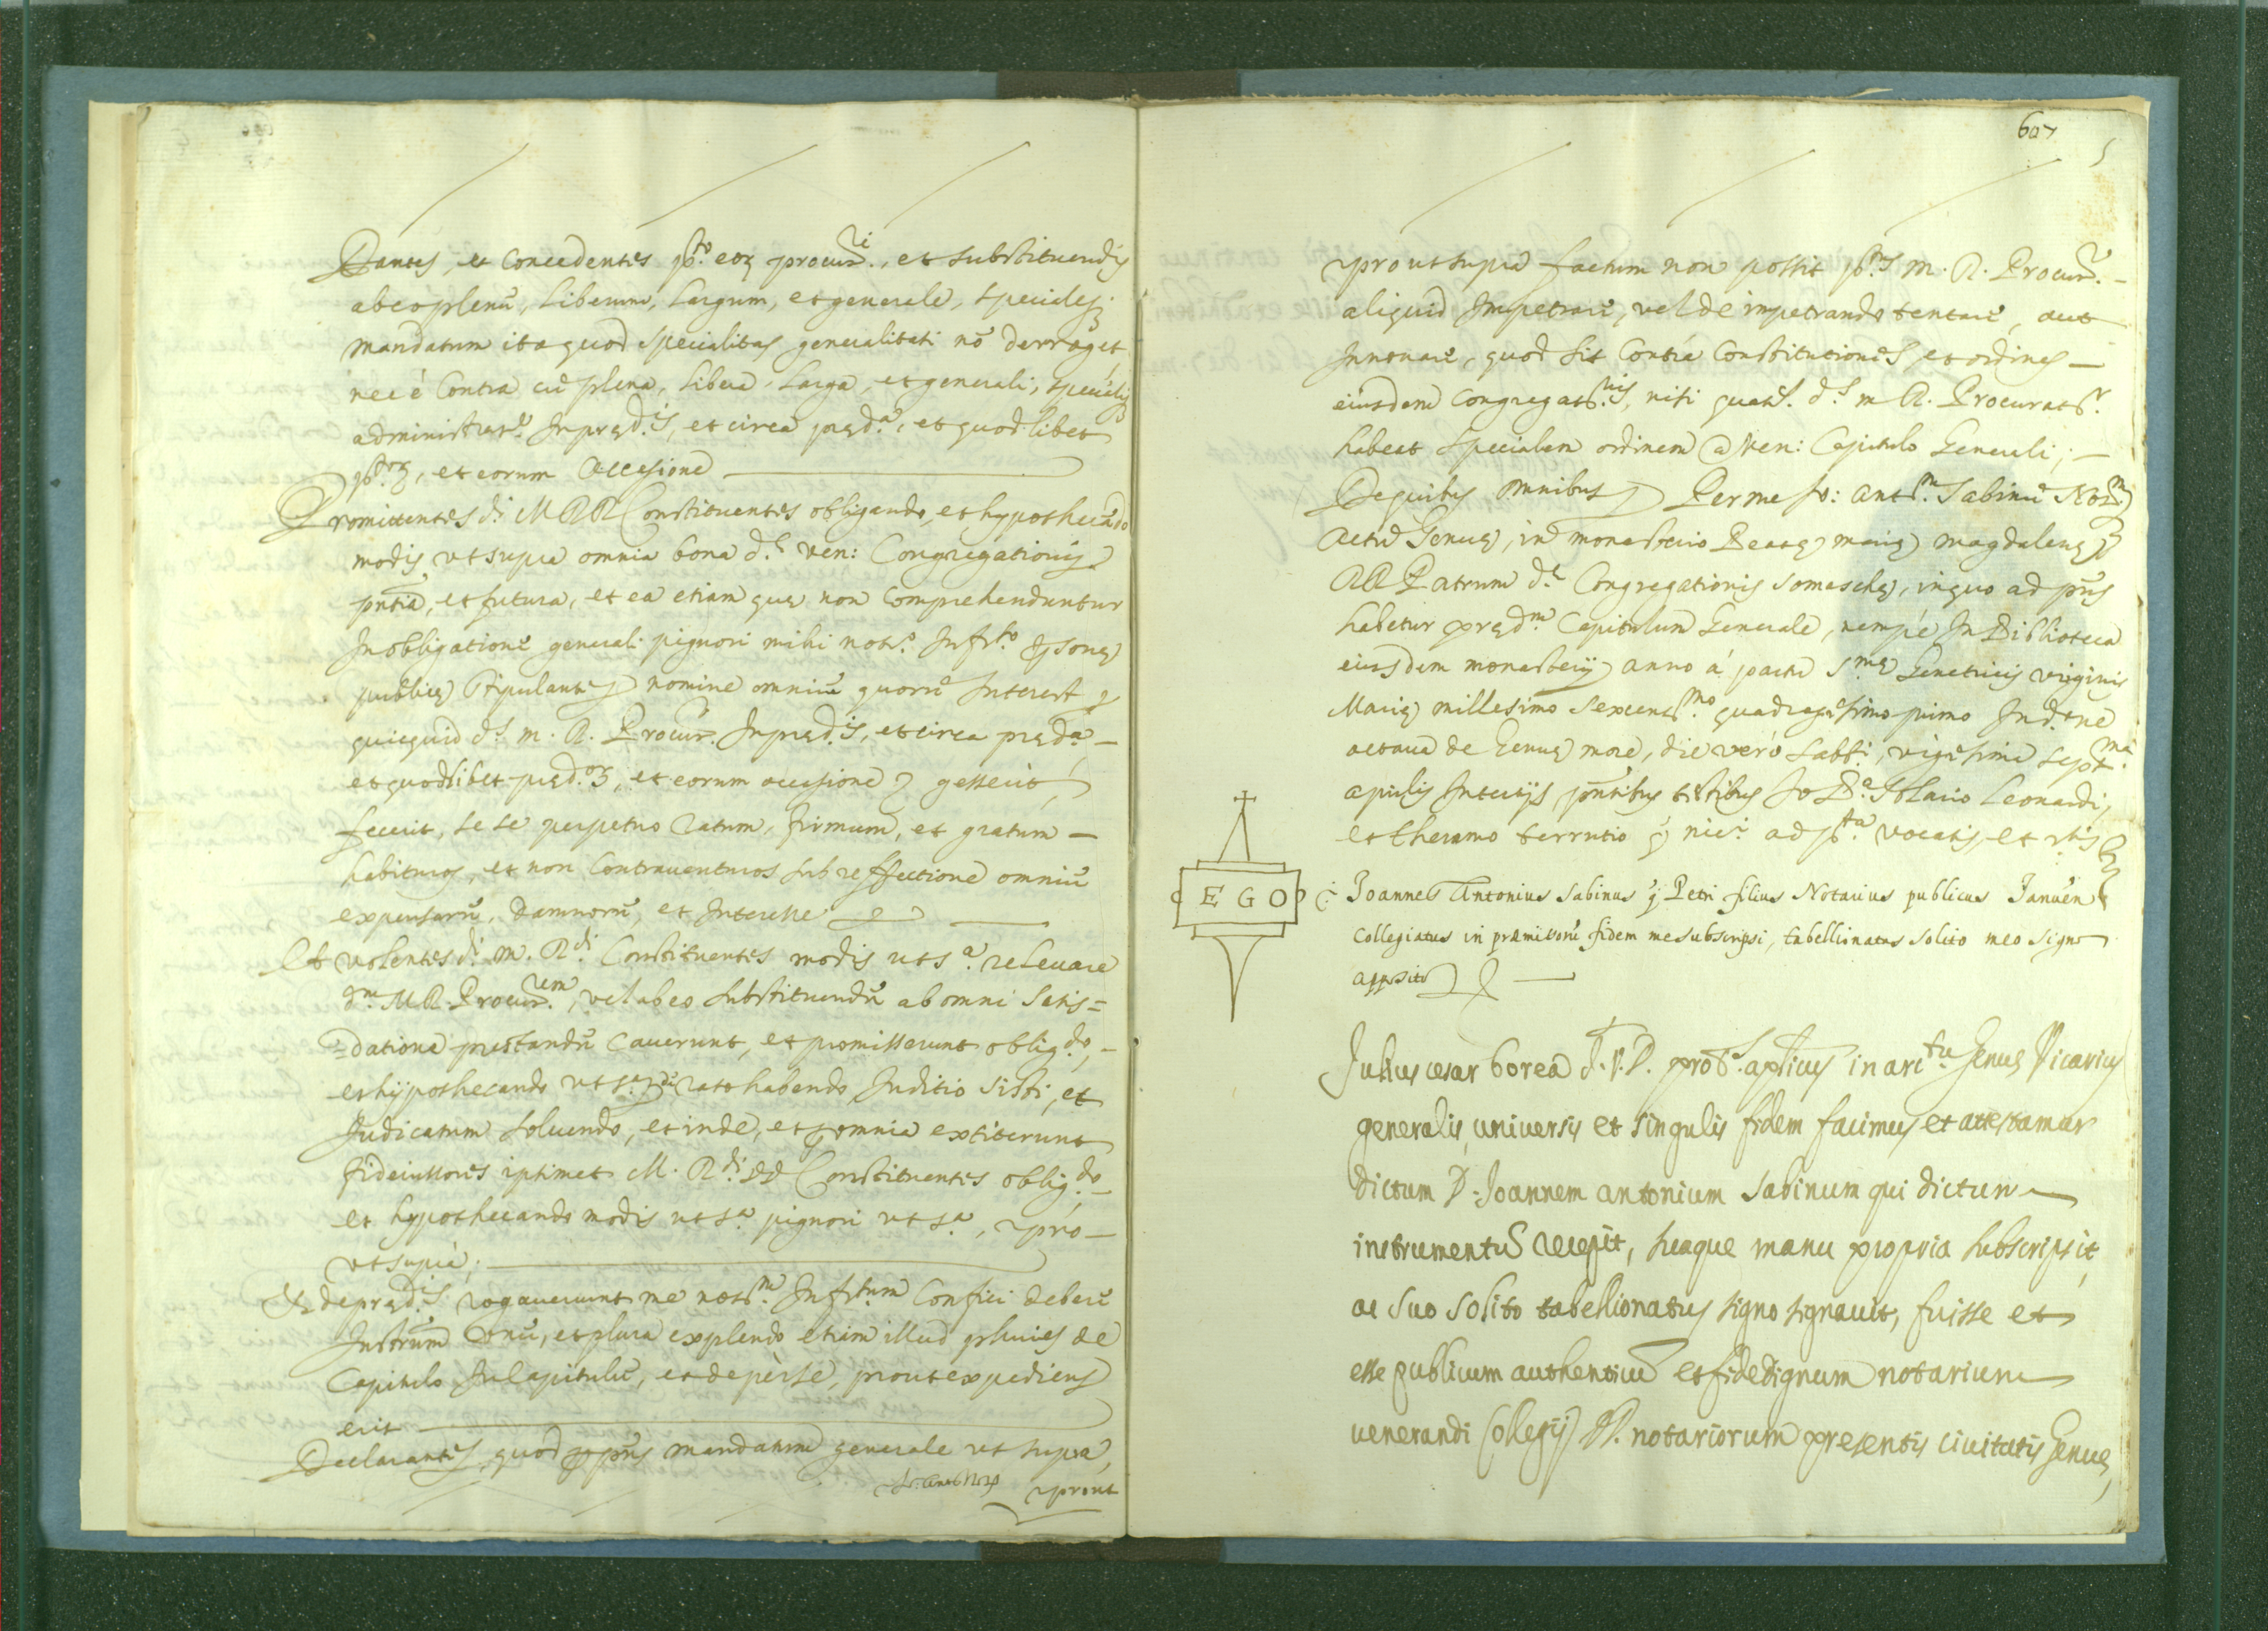 Dantes, et Concedentes p.to eor procur.ri, et substituendis
ab eo plenū, liberum, largum, et generale, specialeq;
mandatum ita quod specialitas generalitati nō derroget,
nec è Contra cū plena, libera, larga, et generali, specialiq;
administrat.e In pręd.is, et circa pręd.a, et quodlibet
p.tor, et eorum occasione
Promittentes d.i M RR Constituentes obligando, et hypothecādo
modis, ut supra omnia bona d.e ven: Congregationis
pntia, et futura, et ea etiam quę non Comprehenduntur
In obligatione generali pignori mihi not.o Infr.to personę
publicę stipulanti nomine omniū quorū Interest
quicquid d.s m. R. Procur.r In pręd.is, et circa pręd.a
et quodlibet pręd.or, et eorum occasione gesserit,
fecerit, se se perpetuo ratum, firmum, et gratum
habituros, et non Contrauenturos sub reffectione omniū
expensarū, damnorū, et Interesse
Et volentes d.i m. R.di Constituentes modis ut s.a releuare
d.m M R. Procur.rem, vel ab eo substituendū ab omni satis=
=datione prestandū Cauerunt, et promisserunt oblig.do,
et hypothecando ut s.a de rato habendo Juditio sisti, et
Judicatum soluendo, et inde, et p omnia extiterunt
fideiussores iptimet M. R.di DD Constituentes oblig.do
et hypothecando modis ut s.a pignori ut s.a, pro
ut supra;
Et de pręd.is rogauerunt me not.m Infr.tum Confici debere
Instrum̃ vnū, et plura explendo etiam illud pluries de
Capitulo In Capitulū, et de per se, prout expediens
erit
Declarantes, quod p pñs mandatum generale ut supra,
Jo: Ant.s Not.s prout
607
prout supra factum non possit p.tus m. R. Procur.r
aliquid Impetrare, vel de impetrando tentare, aut
Innouare, quod sit Contra Constitutiones, et ordines
eiusdem Congregat.nis, nisi quat.s d.s m R. Procurat.r
habeat specialem ordinem a Ven: Capitulo Generali;
De quibus omnibus Per me Jo: Ant.m Sabinū Not.m
Actū Genuę, in monasterio Beatę Marię Magdalenę
RR Patrum d.e Congregationis Somaschę, in quo ad pñs
habetur pręd.m Capitulum Generale, nempè In Biblioteca
eiusdem monasterij anno à partu S.mę Genetricis virginis
Marię millesimo sexcent.mo quadragesimo primo Ind.ne
octaua de Genuę more, die verò sabb.i, vigesima sept.ma
aprilis Intertijs pñtibus testibus Jo B.a Solario Leonardi,
et theramo terrutio q nic.i ad p.ta vocatis, et rtis
E G O Joannes Antonius Sabinus q Petri filius Notarius publicus Januen
Collegiatus in præmissorū fidem me subscripsi, tabellionatus solito meo signo
apposito
Julius cesar borea J. V. D. prot.s aplicus in arc.tu Genuę Vicarius
generalis, uniuersis et singulis fidem facimus et attestamur
dictum D. Joannem antonium Sabinum qui dictum
instrumentū recepit, suaque manu propria subscripsit,
ac suo solito tabellionatus signo signauit, fuisse et
esse publicum authenticū et fide dignum notarium
venerandi Collegij DD. notariorum presentis ciuitatis Genuę,